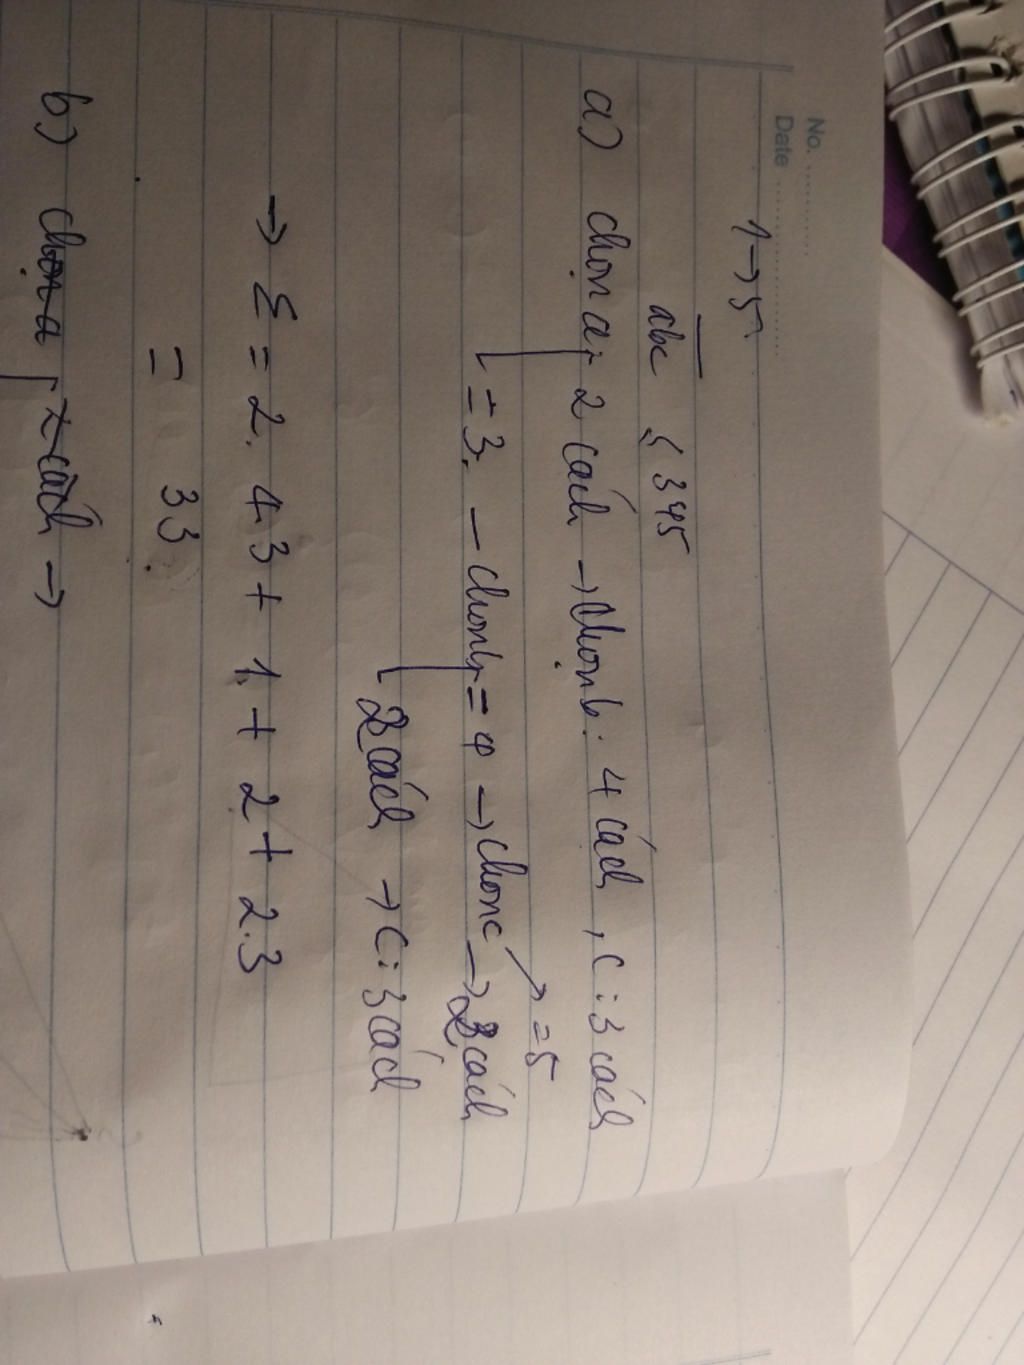 No.
Date
1 → 5
abc ≤ 345
a) chọn a: 2 cách → chọn b: 4 cách, c: 3 cách
= 5
= 3. - chọn b = 4 → chọn c → 2 cách
2 cách → c: 3 cách
→ Σ = 2. 4.3 + 1 + 2 + 2.3
= 33
b) chọn a cách →